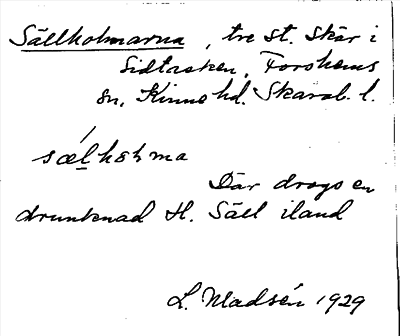 Sällholmarna, tre st. skär i
Sidtasken, Forshems
sn, Kinne hd. Skarab. l.
sælhɵlma
Där drogs en
drunknad H. Säll iland
L. Madsén 1929